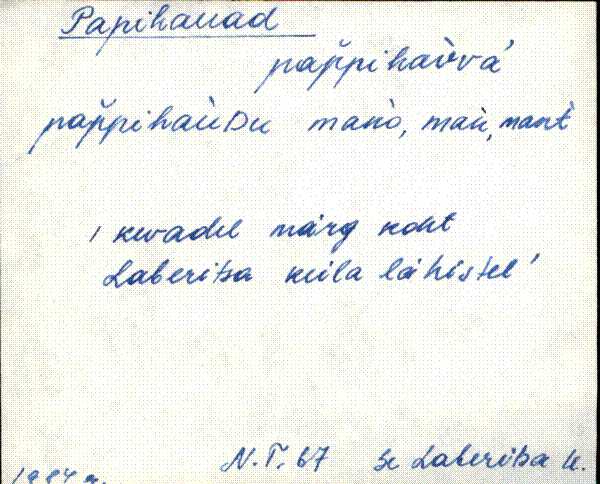 Papihauad
pap̆pihaùvá
pap̆pihaùDu mano, man, mant
' kevadel märg koht
Laberitsa küla lähistel '
N.T. 67 Se Laberitsa k.